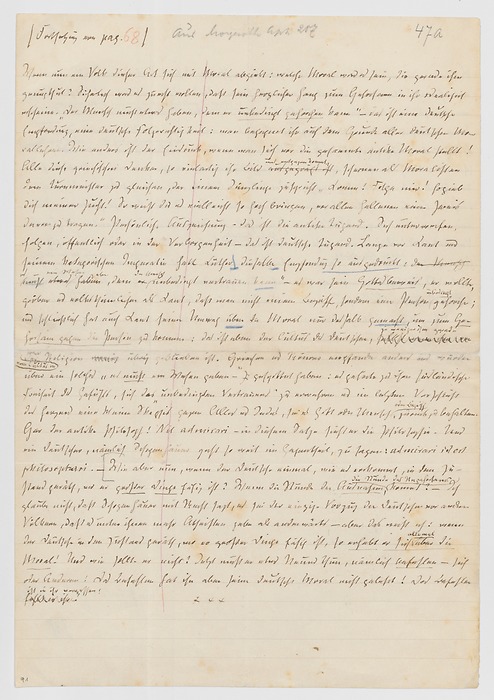 [Fortsetzung von pag. 68] Aus Morgenröthe Aph. 207 47a
Wenn nun ein Volk dieser Art sich mit Moral abgiebt: welche Moral wird es sein, die gerade ihm
genugthut? Sicherlich wird es zuerst wollen, daß sein herzlicher Hang zum Gehorsam in ihr idealisirt
erscheine. Der Mensch muß etwas haben, dem er unbedingt gehorchen kann" — das ist eine deutsche
Empfindung, eine deutsche Folgerichtigkeit: man begegnet ihr auf dem Grunde aller deutschen Mo-
rallehren. Wie anders ist der Eindruck, wenn man sich vor die gesammte antike Moral stellt!
Alle diese griechischen Denker, so vielartig ihr Bild uns entgegenkommt, scheinen als Moralisten
dem Turnmeister zu gleichen, der einem Jünglinge zuspricht „Komm! Folge mir! Ergieb
dich meiner Zucht! So wirst du es vielleicht so hoch bringen, vor allen Hellenen einen Preis
davonzutragen." Persönliche Auszeichnung — das ist die antike Tugend. Sich unterwerfen,
folgen, öffentlich oder in der Verborgenheit — das ist deutsche Tugend. Lange vor Kant und
seinem kategorischen Imperativ hatte Luther aus derselben Empfindung
unbedingt vertrauen kann" — es war sein Gottesbeweis, er wollte,
gröber und volksthümlicher als Kant, daß man nicht einem Begriffe, sondern einer Person unbedingt gehorche;
und schließlich hat auch Kant seinen Umweg über die Moral nur deshalb gemacht, um zum Ge-
horsam gegen die Person zu kommen: das ist eben der Cultus des Deutschen,
Religion übrig geblieben ist. Griechen und Römer empfanden anders und würden
über ein solches „es muß ein Wesen geben" — gespottet haben: es gehörte zu ihrer südländischen
Freiheit des Gefühls, sich des „unbedingten Vertrauens" zu erwehren und im letzten Verschluß
des Herzens eine kleine Skepsis gegen Alles und Jedes, sei es Gott oder Mensch oder Begriff, zurückzubehalten.
Gar der antike Philosoph! Nil admirari — in diesem Satze sieht er die Philosophie. Und
ein Deutscher, nämlich Schopenhauer geht so weit im Gegentheil, zu sagen: admirari id est
philosophari. — Wie aber nun, wenn der Deutsche einmal, wie es vorkommt, in den Zu-
stand geräth, wo er großer Dinge fähig ist? Wenn die Stunde der Ausnahme kommt, die Stunde des Ungehorsams? — Ich
glaube nicht, daß Schopenhauer mit Recht sagt, es sei der einzige Vorzug der Deutschen vor anderen
Völkern, daß es unter ihnen mehr Atheisten gebe als anderwärts — aber das weiß ich: wenn
der Deutsche in den Zustand geräth, wo er großer Dinge fähig ist, so erhebt er sich allemal über die
Moral! Und wie sollte er nicht? Jetzt muß er etwas Neues thun, nämlich befehlen — sich
oder Anderen! Das Befehlen hat ihn aber seine deutsche Moral nicht gelehrt! Das Befehlen
ist in ihr vergessen!